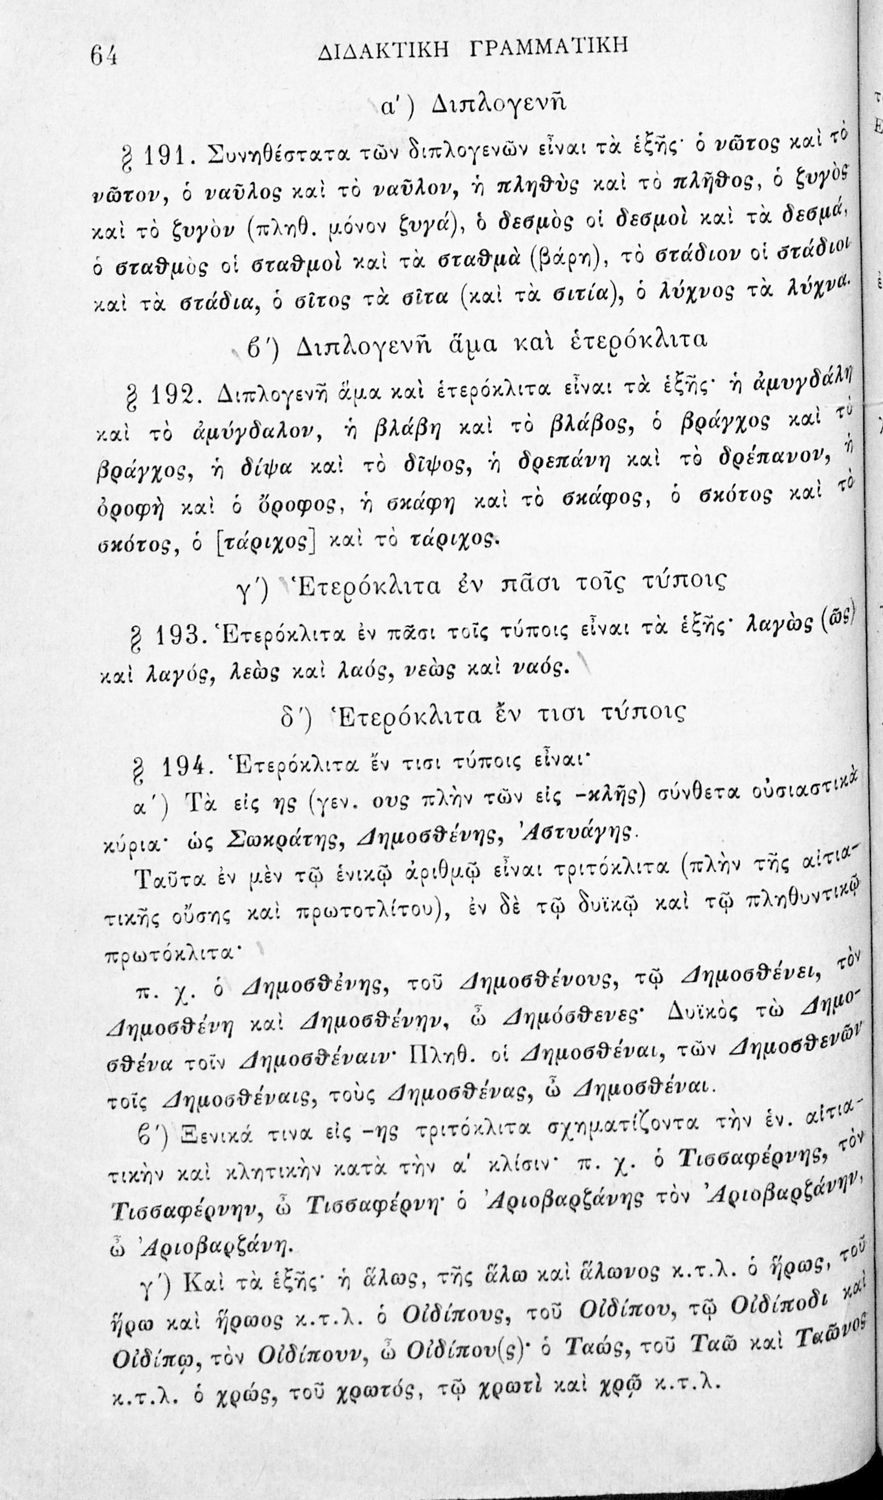 64 ΔΙΔΑΚΤΙΚΗ ΓΡΑΜΜΑΤΙΚΗ
α') Διπλογενῆ
§ 191. Συνηθέστατα τῶν διπλογενῶν εἶναι τὰ ἑξῆς· ὁ νῶτος καὶ τὸ
νῶτον, ὁ ναῦλος καὶ τὸ ναῦλον, ἡ πληθὺς καὶ τὸ πλῆθος, ὁ ζυγὸς
καὶ τὸ ζυγὸν (πληθ. μόνον ζυγά), ὁ δεσμὸς οἱ δεσμοὶ καὶ τὰ δεσμά,
ὁ σταθμὸς οἱ σταθμοὶ καὶ τὰ σταθμὰ (βάρη), τὸ στάδιον οἱ στάδιοι
καὶ τὰ στάδια, ὁ σῖτος τὰ σῖτα (καὶ τὰ σιτία), ὁ λύχνος τὰ λύχνα.
β') Διπλογενῆ ἅμα καὶ ἑτερόκλιτα
§ 192. Διπλογενῆ ἅμα καὶ ἑτερόκλιτα εἶναι τὰ ἑξῆς· ἡ ἀμυγδάλη
καὶ τὸ ἀμύγδαλον, ἡ βλάβη καὶ τὸ βλάβος, ὁ βράγχος καὶ τὸ
βράγχος, ἡ δίψα καὶ τὸ δῖψος, ἡ δρεπάνη καὶ τὸ δρέπανον, ἡ
ὀροφὴ καὶ ὁ ὄροφος, ἡ σκάφη καὶ τὸ σκάφος, ὁ σκότος καὶ τὸ
σκότος, ὁ [τάριχος] καὶ τὸ τάριχος.
γ') Ἑτερόκλιτα ἐν πᾶσι τοῖς τύποις
§ 193. Ἑτερόκλιτα ἐν πᾶσι τοῖς τύποις εἶναι τὰ ἑξῆς· λαγὼς (ῶς)
καὶ λαγός, λεὼς καὶ λαός, νεὼς καὶ ναός.
δ') Ἑτερόκλιτα ἔν τισι τύποις
§ 194. Ἑτερόκλιτα ἔν τισι τύποις εἶναι·
α') Τὰ εἰς ης (γεν. ους πλὴν τῶν εἰς -κλῆς) σύνθετα οὐσιαστικὰ
κύρια· ὡς Σωκράτης, Δημοσθένης, Ἀστυάγης.
Ταῦτα ἐν μὲν τῷ ἑνικῷ ἀριθμῷ εἶναι τριτόκλιτα (πλὴν τῆς αἰτια-
τικῆς οὔσης καὶ πρωτοτλίτου), ἐν δὲ τῷ δυϊκῷ καὶ τῷ πληθυντικῷ
πρωτόκλιτα·
π. χ. ὁ Δημοσθένης, τοῦ Δημοσθένους, τῷ Δημοσθένει, τὸν
Δημοσθένη καὶ Δημοσθένην, ὦ Δημόσθενες· Δυϊκὸς τὼ Δημο-
σθένα τοῖν Δημοσθέναιν· Πληθ. οἱ Δημοσθέναι, τῶν Δημοσθενῶν
τοῖς Δημοσθέναις, τοὺς Δημοσθένας, ὦ Δημοσθέναι.
β') Ξενικά τινα εἰς -ης τριτόκλιτα σχηματίζοντα τὴν ἑν. αἰτια-
τικὴν καὶ κλητικὴν κατὰ τὴν α' κλίσιν· π. χ. ὁ Τισσαφέρνης, τὸν
Τισσαφέρνην, ὦ Τισσαφέρνη· ὁ Ἀριοβαρζάνης τὸν Ἀριοβαρζάνην,
ὦ Ἀριοβαρζάνη.
γ') Καὶ τὰ ἑξῆς· ἡ ἅλως, τῆς ἅλω καὶ ἅλωνος κ.τ.λ. ὁ ἥρως, τοῦ
ἥρω καὶ ἥρωος κ.τ.λ. ὁ Οἰδίπους, τοῦ Οἰδίπου, τῷ Οἰδίποδι καὶ
Οἰδίπῳ, τὸν Οἰδίπουν, ὦ Οἰδίπου(ς)· ὁ Ταώς, τοῦ Ταῶ καὶ Ταῶνος
κ.τ.λ. ὁ χρώς, τοῦ χρωτός, τῷ χρωτὶ καὶ χρῷ κ.τ.λ.